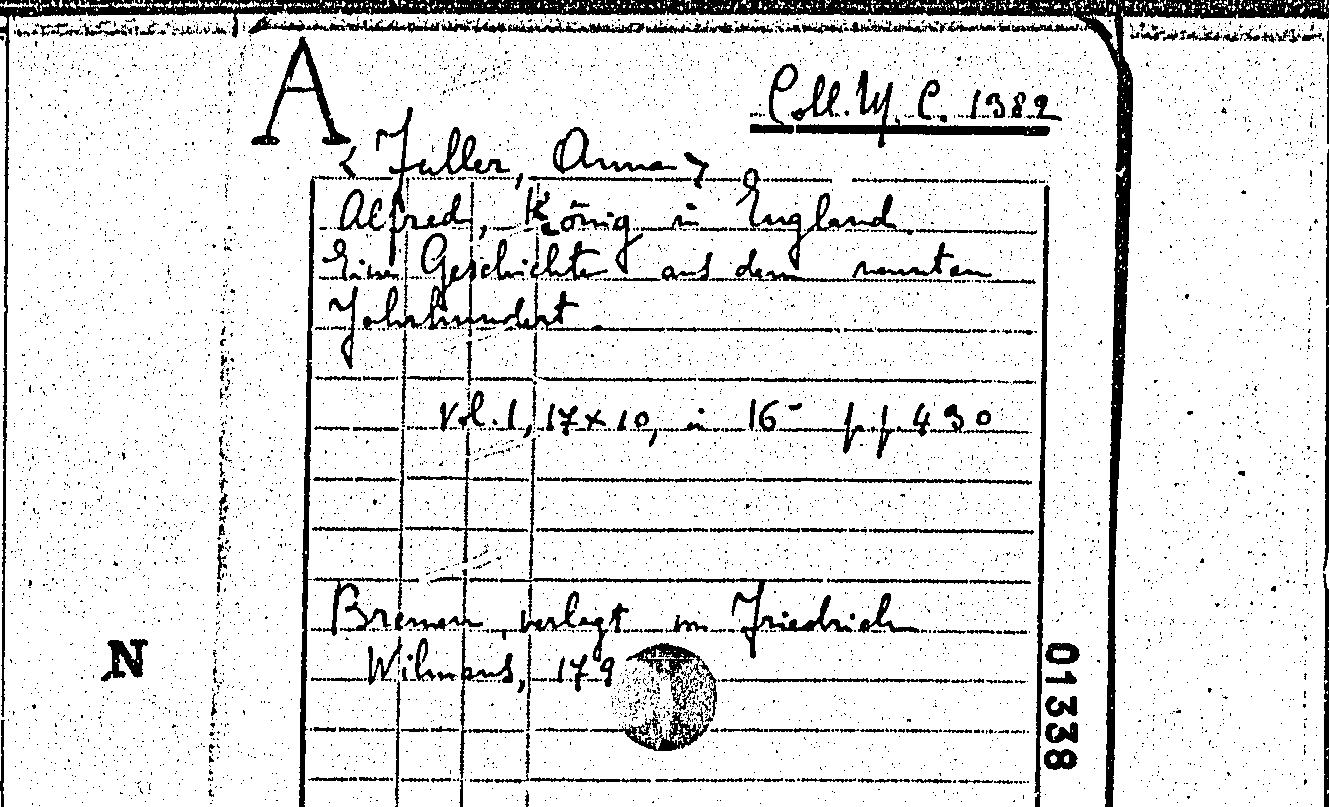 A
Coll. M. C. 1382
< Fuller, Anna >
Alfred, König in England.
Eine Geschichte aus dem neunten
Jahrhundert.
Vol. 1, 17x10, in 16- pp. 430
Bremen, verlegt von Friedrich
Wilmans, 179
N
01338